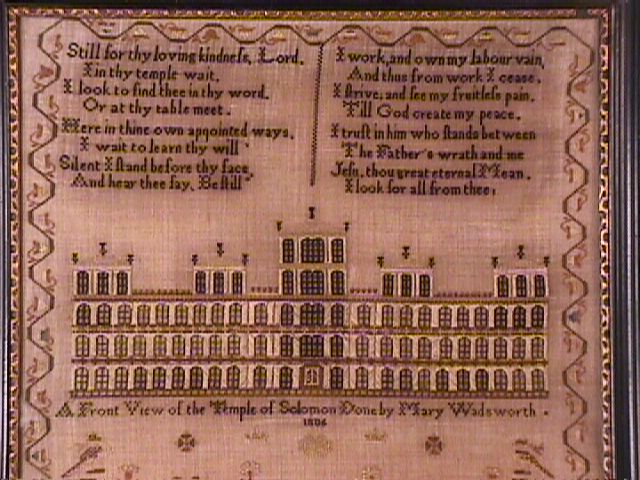 Still for thy loving kindneſs, Lord,
I in thy temple wait.
I look to find thee in thy word.
Or at thy table meet.
Here in thine own appointed ways.
I wait to learn thy will
Silent I ſtand before thy face.
And hear thee ſay, Be ſtill
I work, and own my labour vain,
And thus from work I ceaſe.
I ſtrive, and ſee my fruitleſs pain.
Till God create my peace.
I truſt in him who ſtands between
The Father's wrath and me
Jeſu, thou great eternal Mean.
I look for all from thee;
A Front View of the Temple of Solomon Done by Mary Wadsworth .
1806